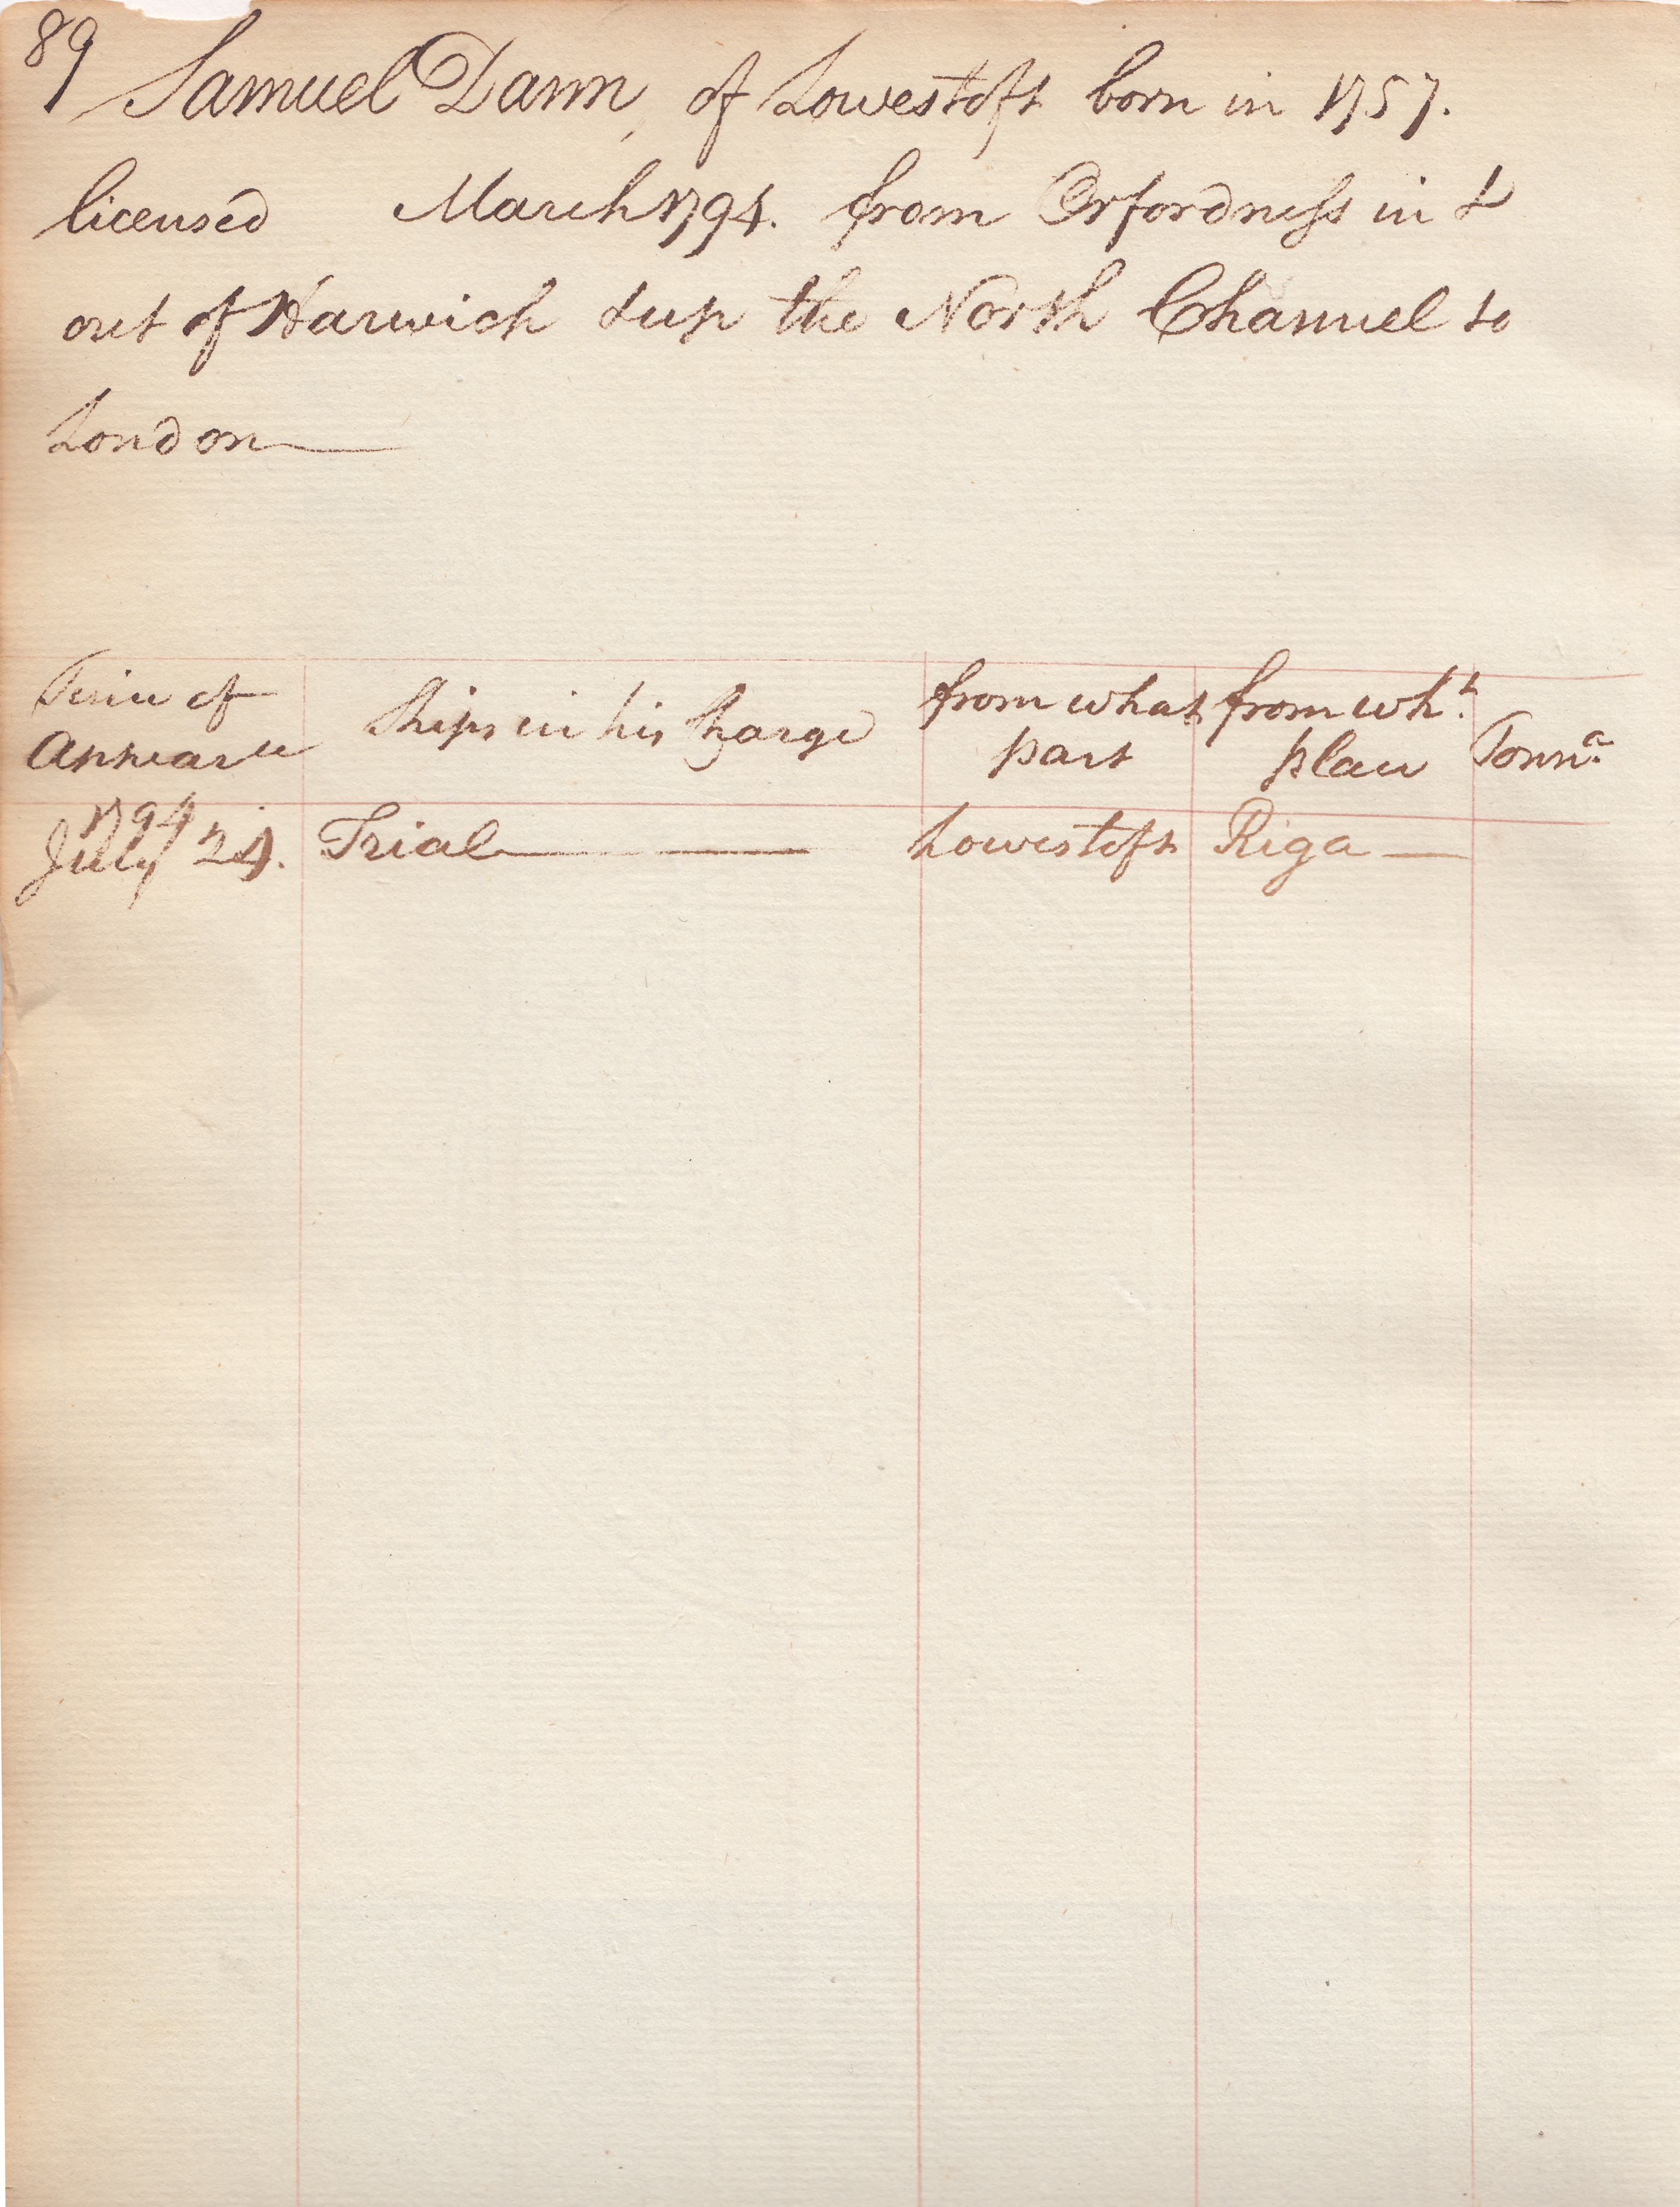 89 Samuel Dann, of Lowestoft born in 1757.
licensed March 1794. from Orfordness in &
out of Harwich & up the North Channel to
London
Time of Appearce
Ships in his Charge
from what part
from wh.t place
Tonn.a
1794
July 24. Trial Lowestoft Riga